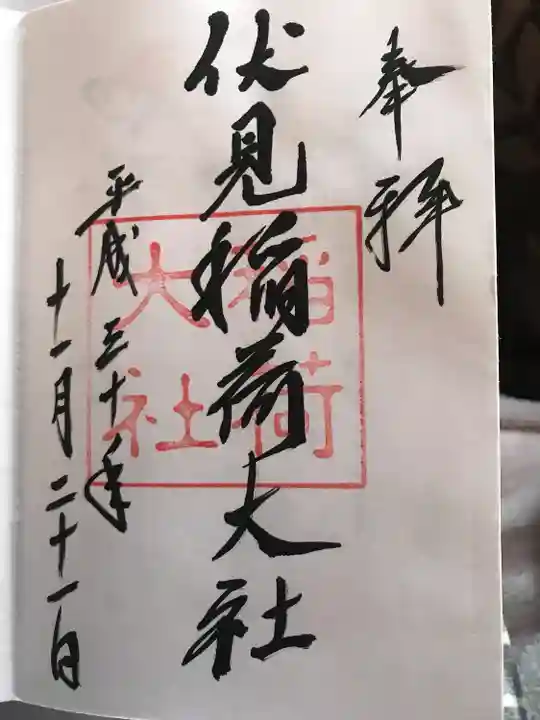 奉拝
伏見稲荷大社
平成三十年
十一月二十一日
稲荷
大社